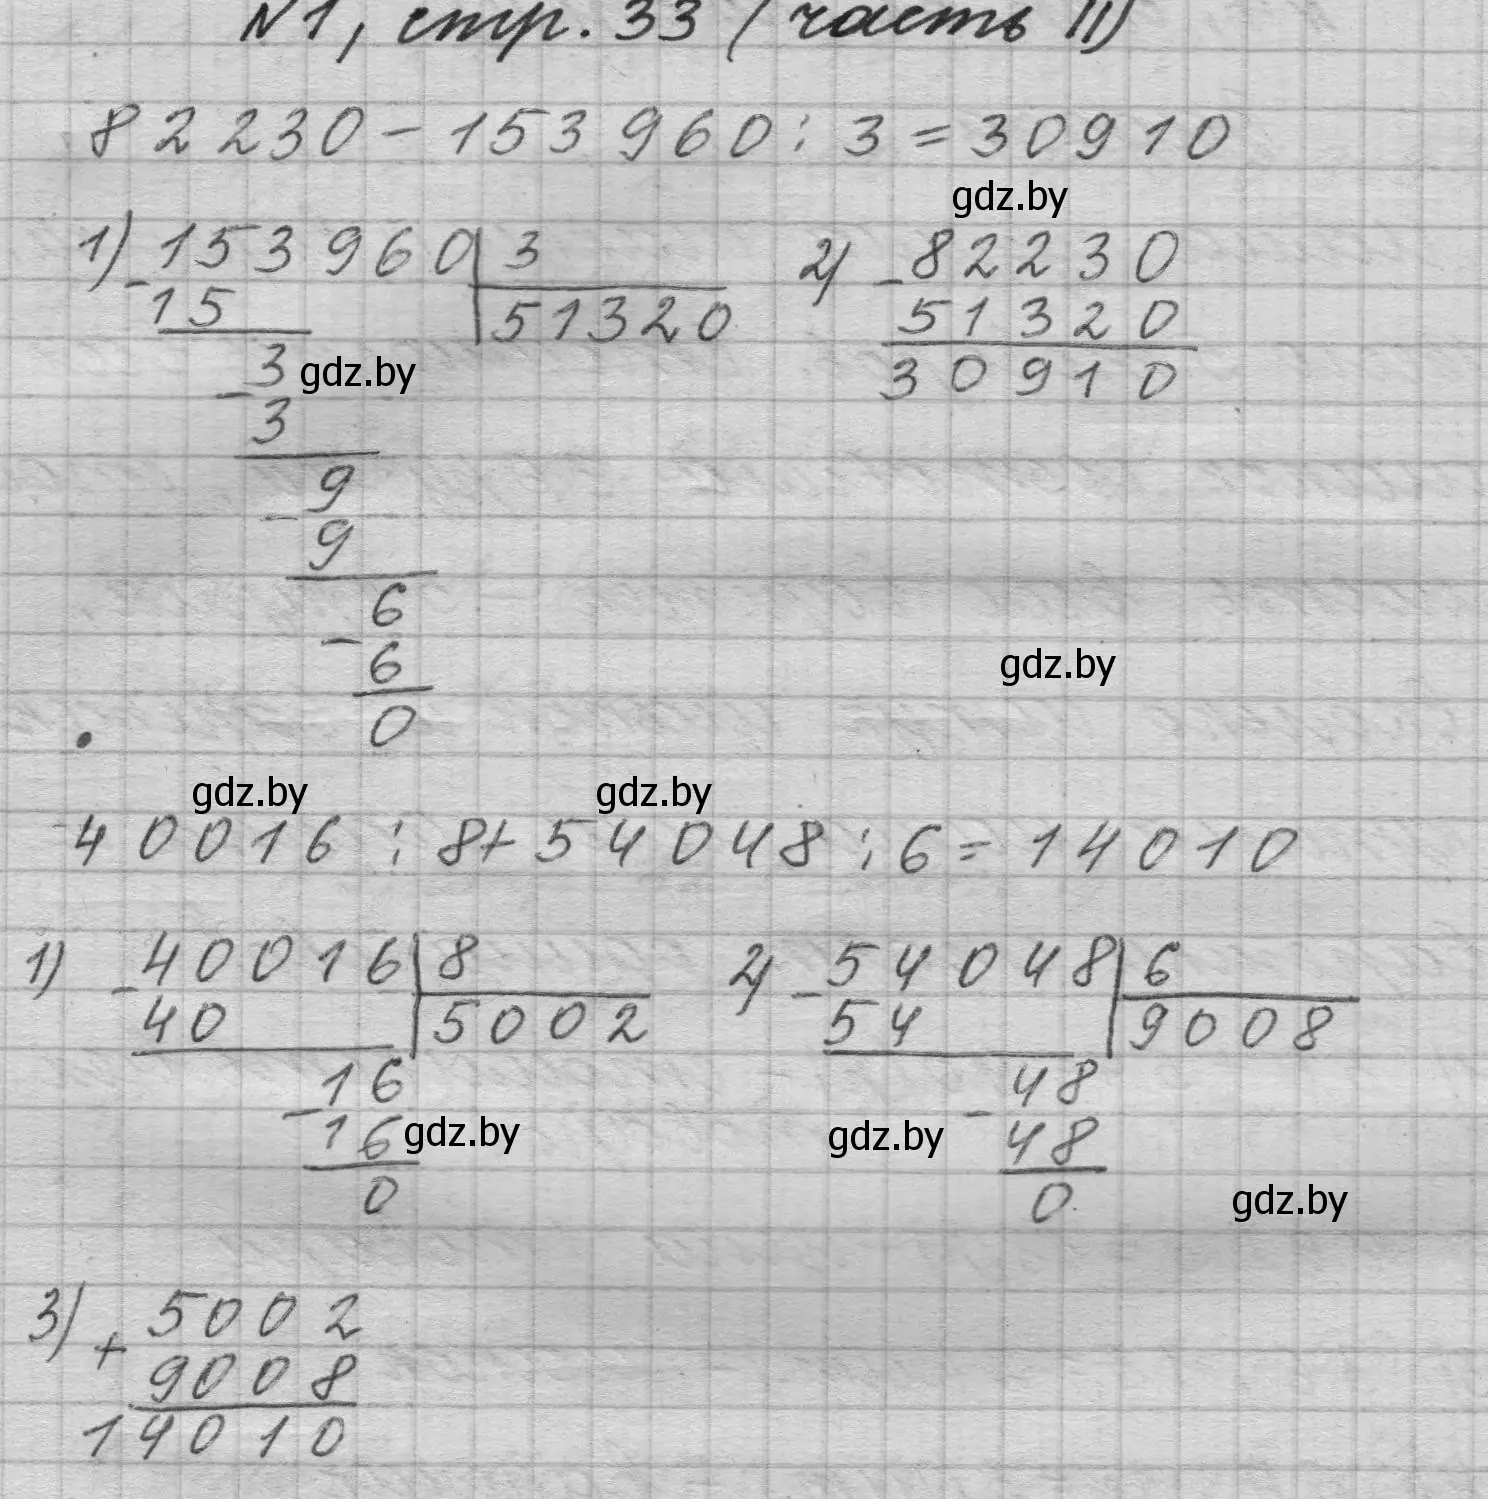 №1, стр. 33 (часть II)
82230 - 153960 : 3 = 30910
gdz.by
1) - 153960 | 3
15 51320
- 3 gdz.by
3
- 9
9
- 6
6
0
2) - 82230
51320
30910
gdz.by
gdz.by gdz.by
40016 : 8 + 54048 : 6 = 14010
1) - 40016 | 8
40 5002
- 16
16 gdz.by
0
2) - 54048 | 6
54 9008
- 48
gdz.by 48
0 gdz.by
3) + 5002
9008
14010